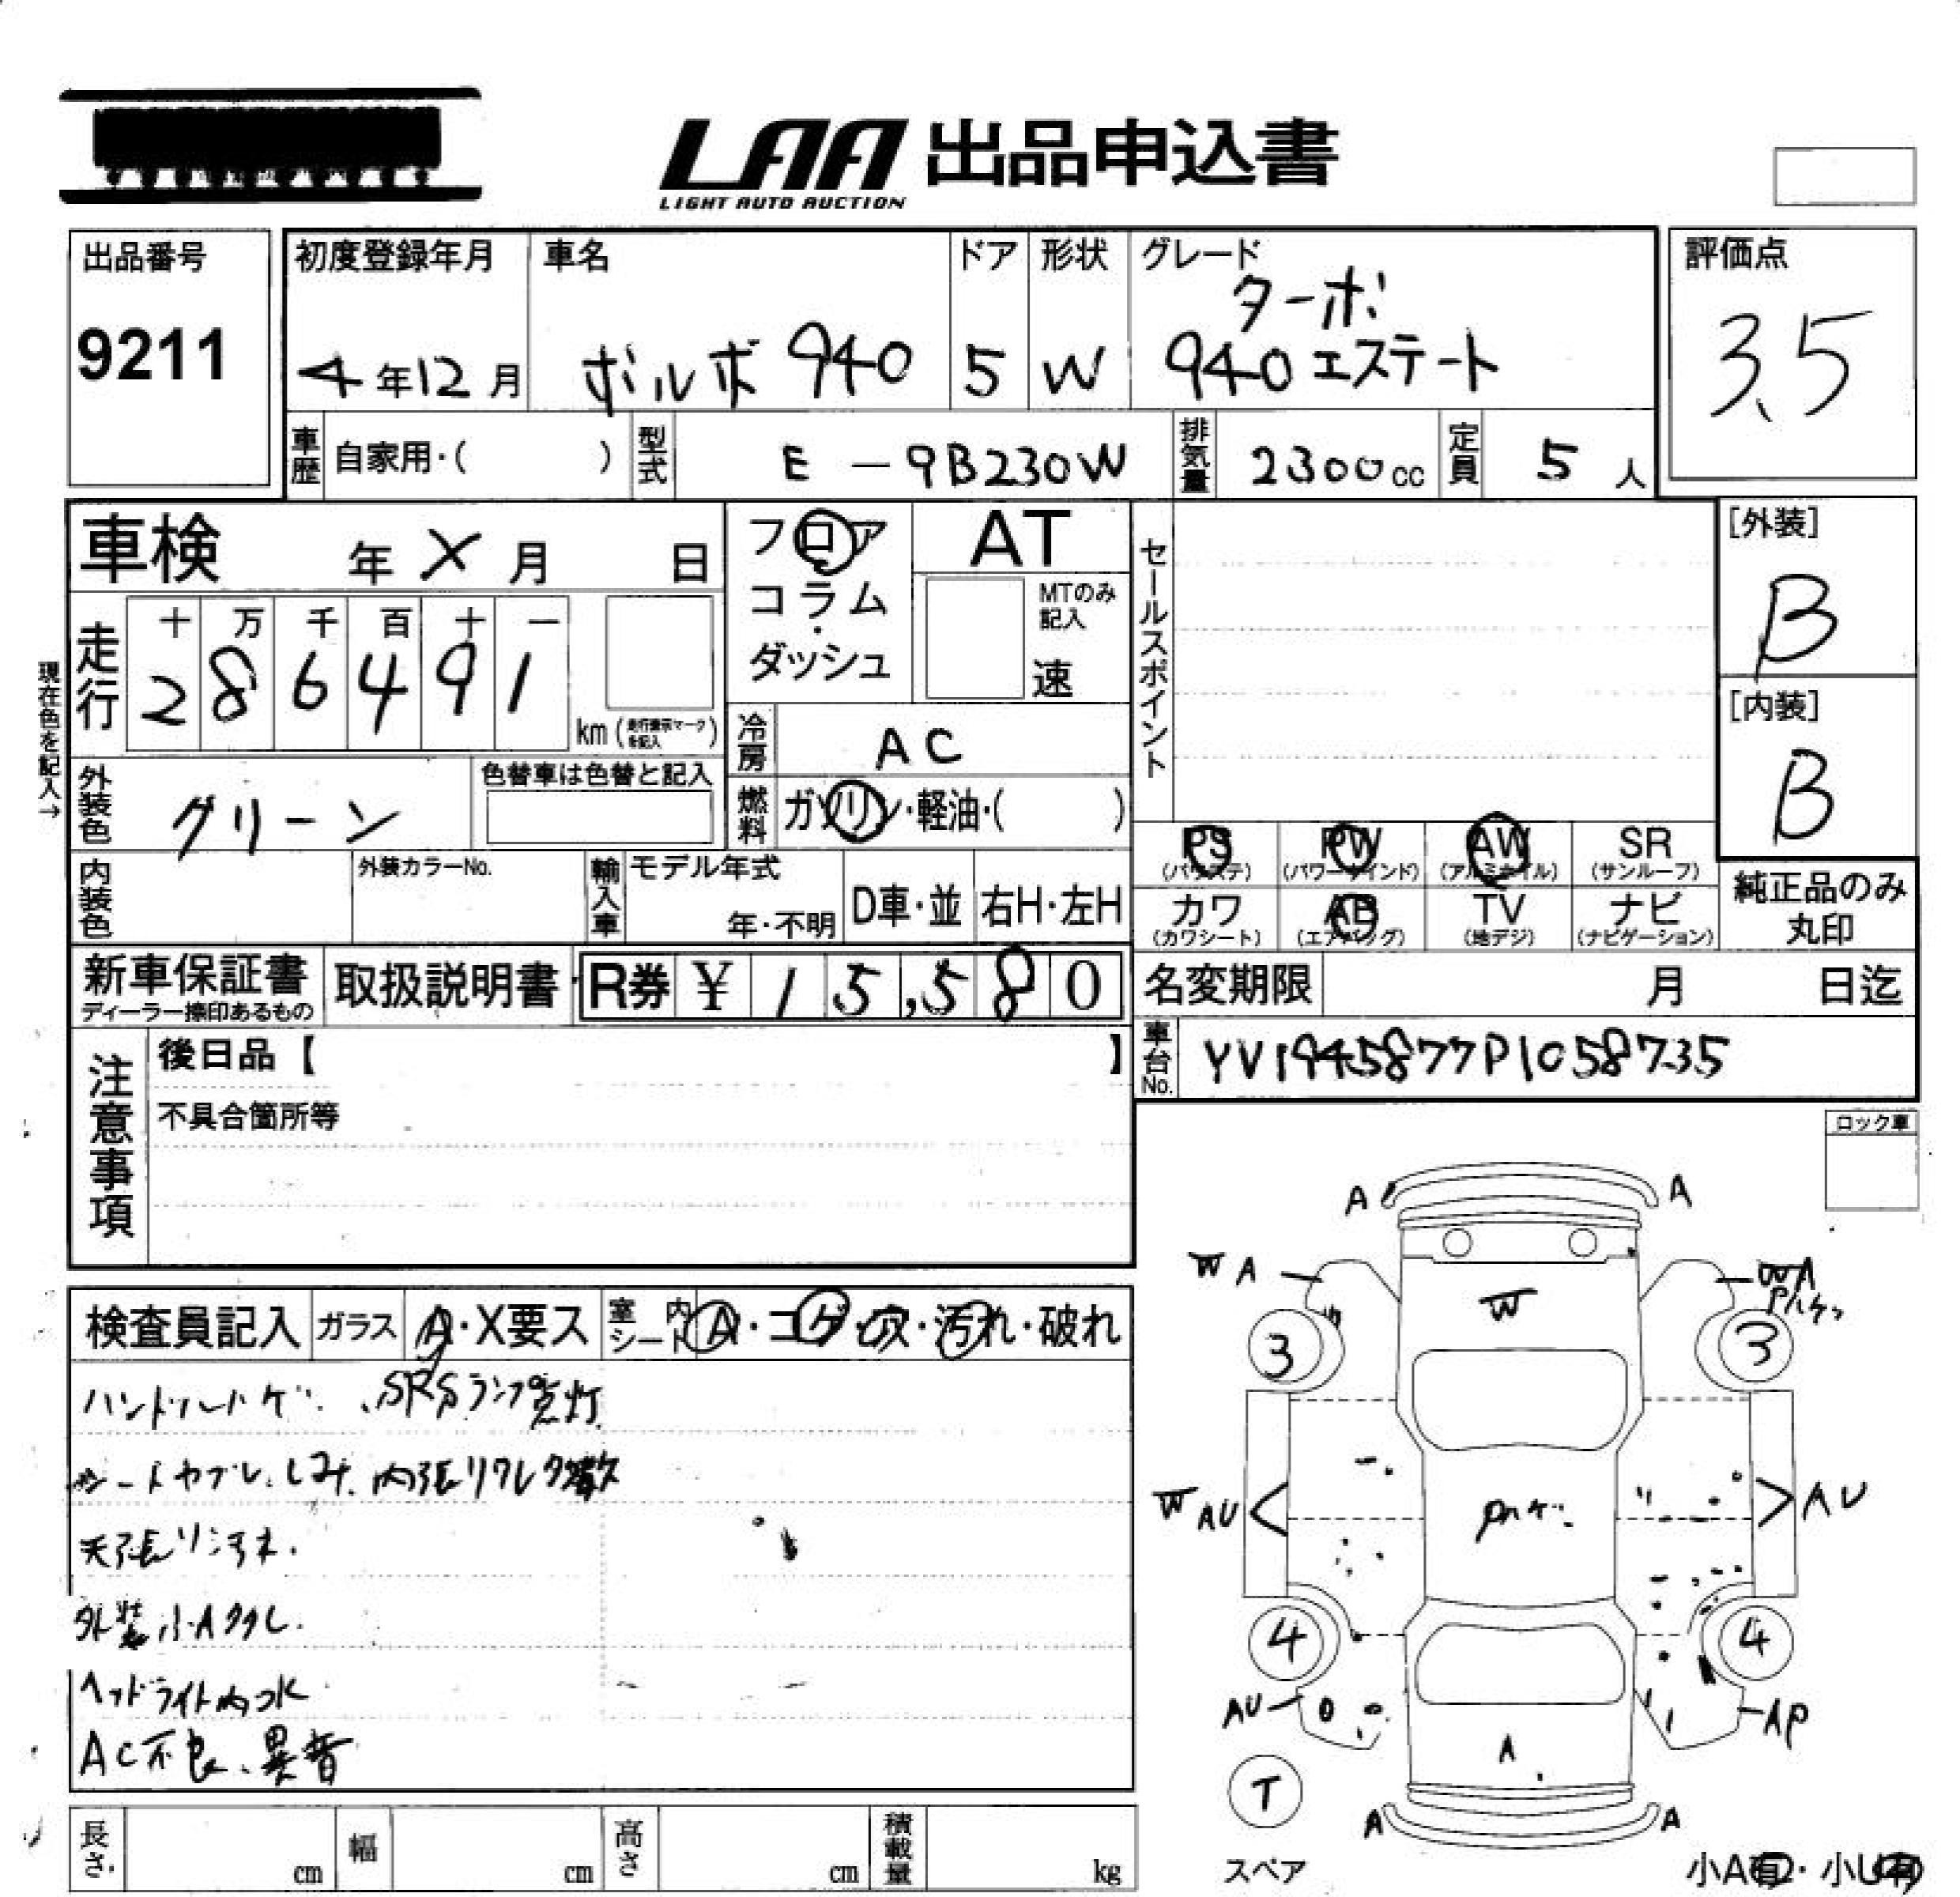 LAA 出品申込書
LIGHT AUTO AUCTION
出品番号
9211
初度登録年月
4年12月
車名
ボルボ 940
ドア
5
形状
W
グレード
ターボ
940エステート
評価点
3.5
車歴
自家用・( )
型式
E-9B230W
排気量
2300cc
定員
5人
車検 年 X 月 日
フロア
コラム
・
ダッシュ
AT
MTのみ
記入
速
セールスポイント
[外装]
B
[内装]
B
現在色を記入→
走行
十 万 千 百 十 一
2 8 6 4 9 1
km(走行表示マークを記入)
冷房
AC
外装色
グリーン
色替車は色替と記入
燃料
ガソリン・軽油・( )
PS
(パワステ)
PW
(パワーウインド)
AW
(アルミホイル)
SR
(サンルーフ)
内装色
外装カラーNo.
輸入車
モデル年式
年・不明
D車・並
右H・左H
カワ
(カワシート)
AB
(エアバッグ)
TV
(地デジ)
ナビ
(ナビゲーション)
純正品のみ
丸印
新車保証書
ディーラー捺印あるもの
取扱説明書
R券 ¥ 15,580
名変期限 月 日迄
車台No.
YV1945877P1058735
注意事項
後日品【 】
不具合箇所等
ロック車
検査員記入
ガラス
A・X要ス
室内
シート
A・コゲ・穴・汚れ・破れ
ハンドルハゲ、SRSランプ点灯
シートヤブレ、シミ、内張リワレ多数
天張リ汚れ.
外装小A
ヘッドライト内水
AC不良、異音
A A
W A
W A
Pハゲ
W
3 3
W AU
Pハゲ
AU
4 4
AU
AP
A
T
A A
スペア
小A有・小U有
長さ cm
幅 cm
高さ cm
積載量 kg